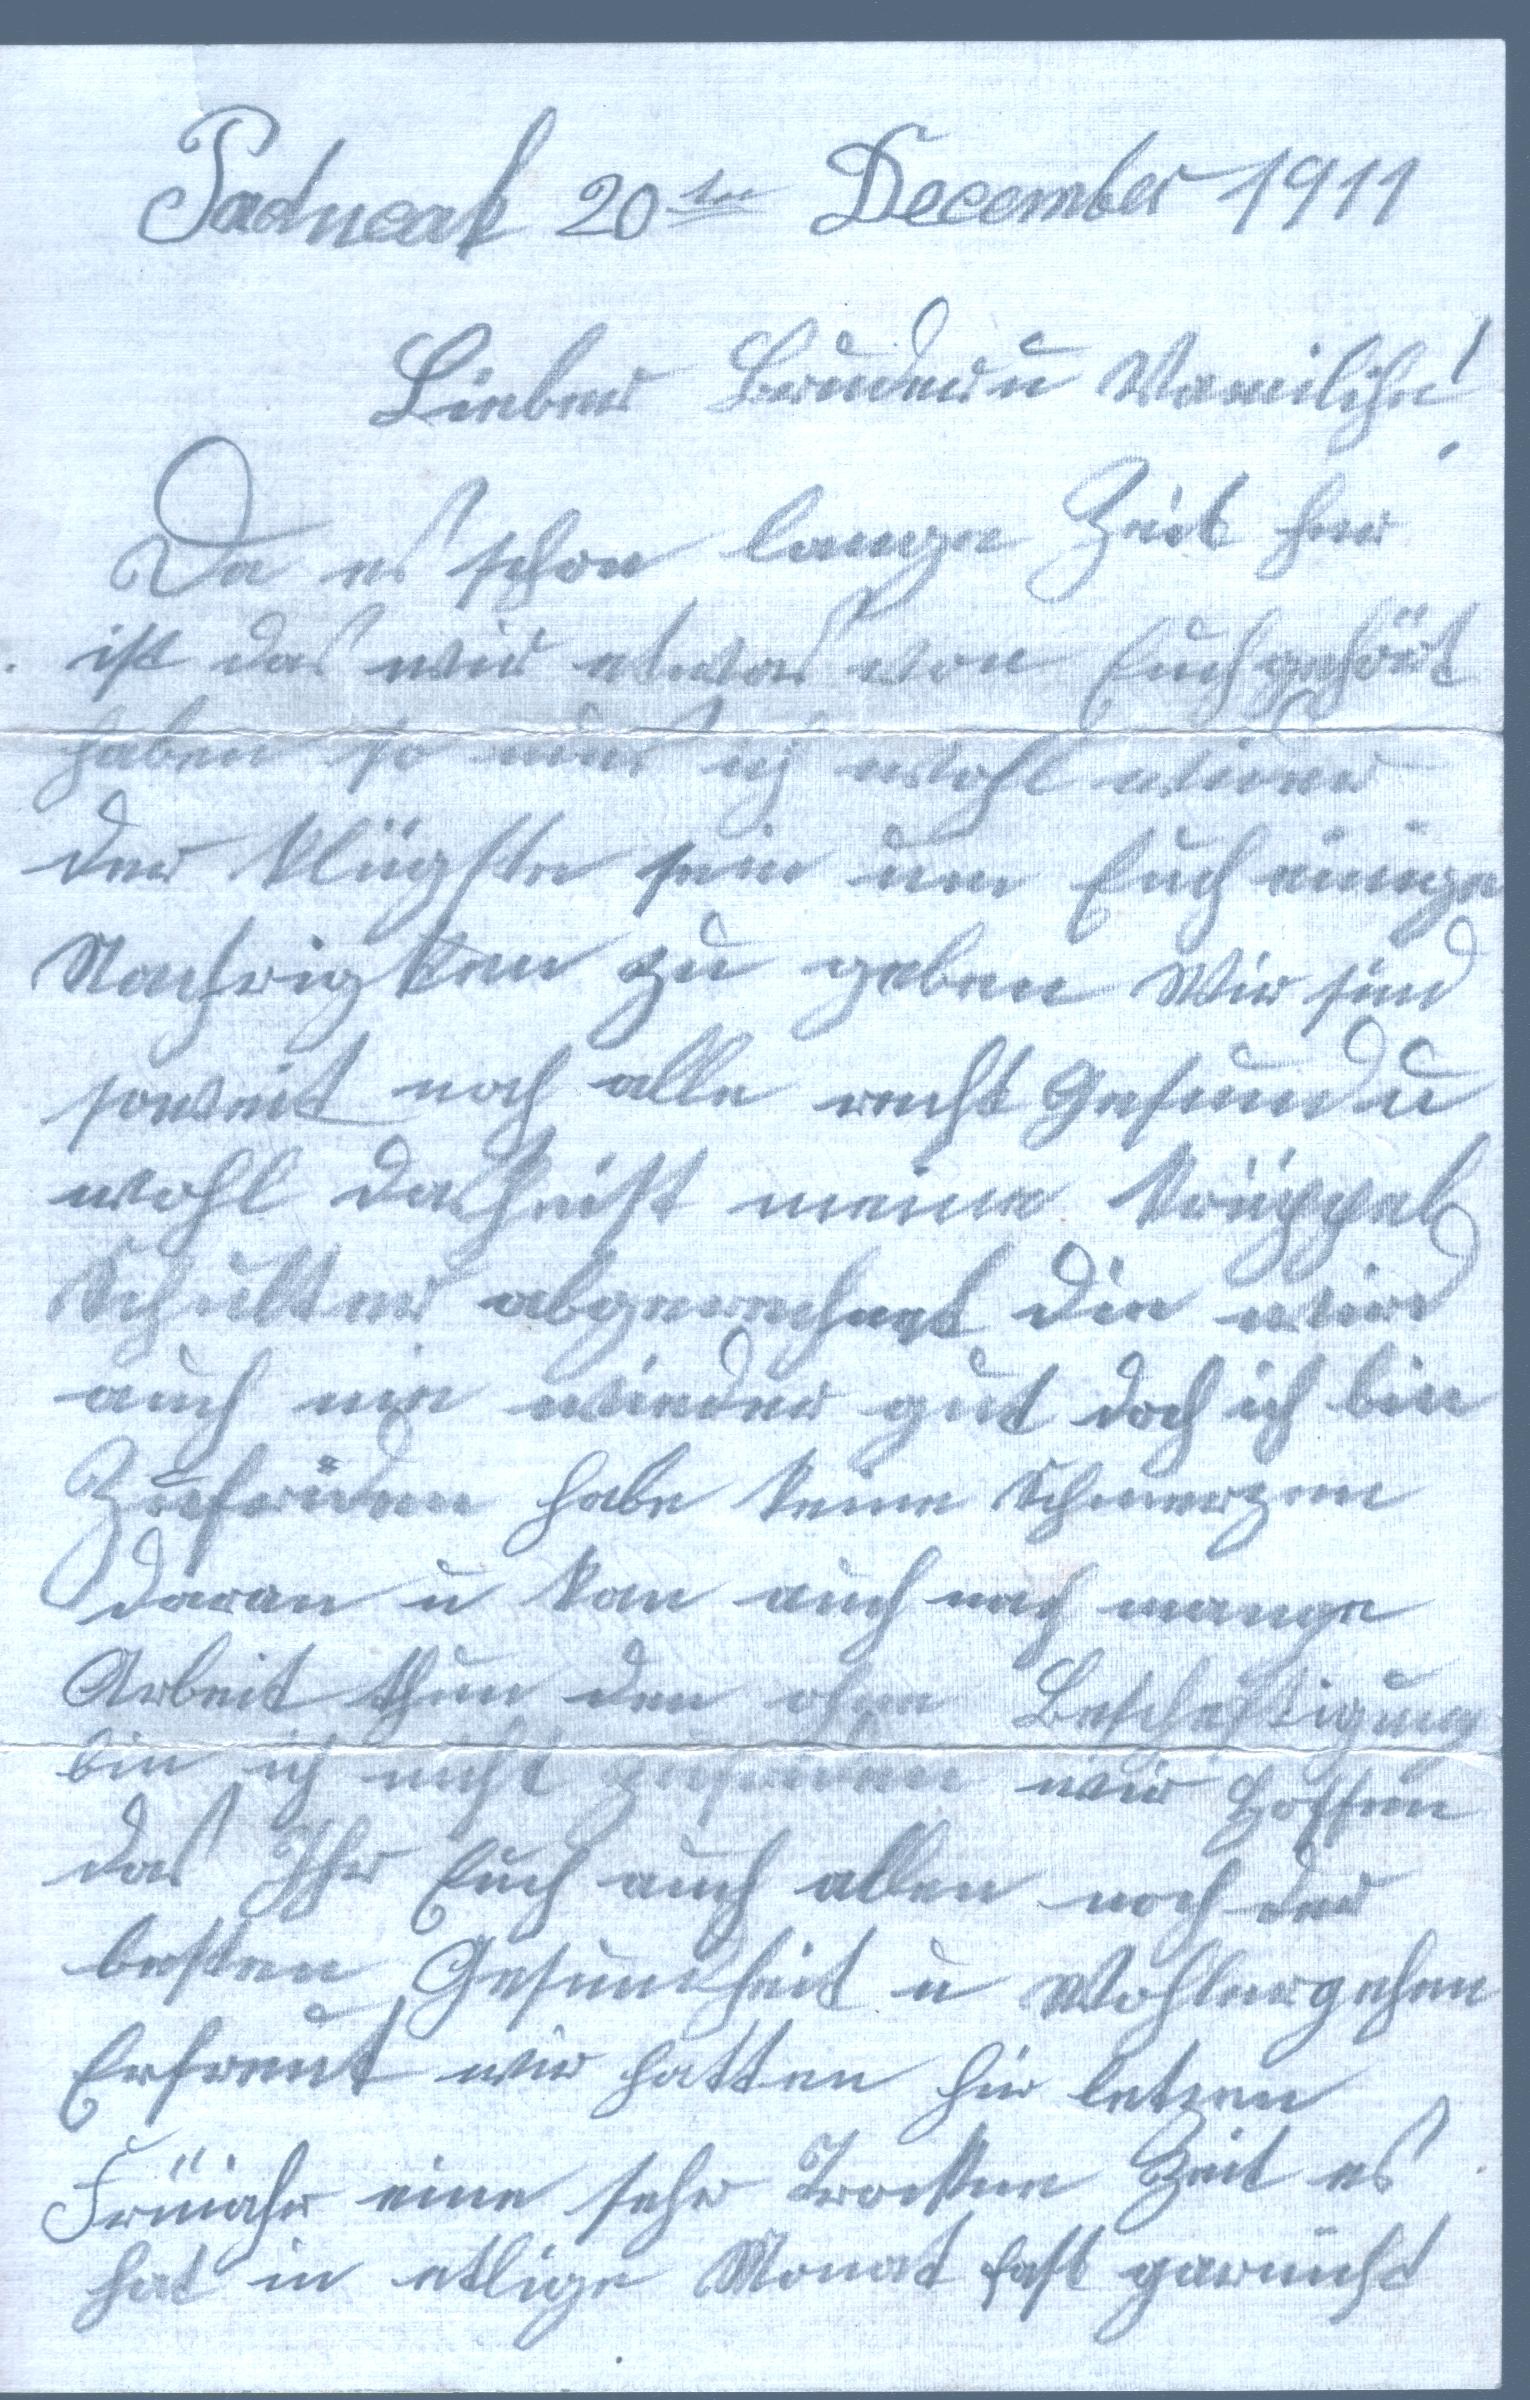 Paducah 20ten December 1911
Lieber Bruder u Vamilihe!
Da es schon lange Zeit her
ist das wir etwas von Euch gehört
haben so mus ich wohl wider
der klügste sein um Euch einige
Nachrigten zu geben Wir sind
soweit noch alle recht Gesund u
wohl das heist meine Krüppel
Schulter abgerechnet die wird
auch nie wieder gut doch ich bin
Zufriden habe keine Schmerzen
daran u kan auch noch mange
Arbeit thun den ohne Beschäftigung
bin ich nicht zufriden wir hoffen
das Ihr Euch auch allen noch der
besten Gesundheit u Wohlergehen
Erfreut wir hatten hir letzen
Früiahr eine sehr Trockne Zeit es
hat in etlige Monat fast garnicht